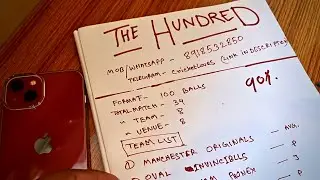 THE HUNDRED
MOB/WHATSAPP - 8918532850
TELEGRAM - (Link IN DESCRIPTION)
FORMAT - 100 BALLS
TOTAL MATCH - 34
" TEAM - 8
" VENUE - 8
90%.
TEAM LIST
① MANCHESTER ORIGINALS - AVG.
② OVAL INVINCIBLES - P